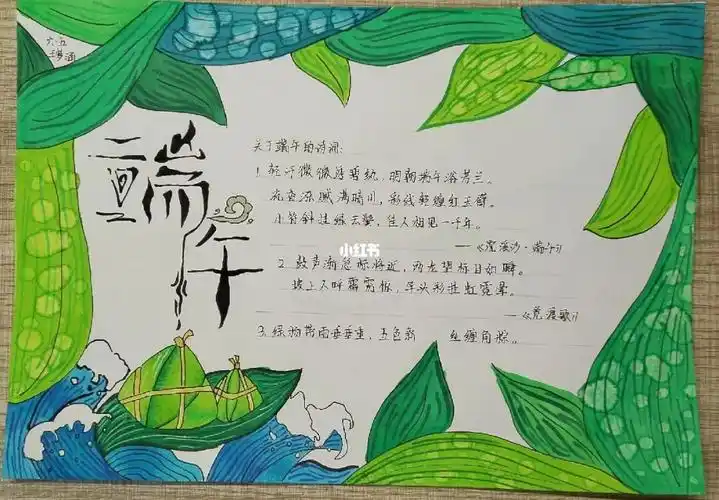 六.五
王梦涵
端午
关于端午的诗词:
1. 轻汗微微透碧纨,明朝端午浴芳兰。
流香涨腻满晴川,彩线轻缠红玉臂。
小符斜挂绿云鬟,佳人相见一千年。
——《浣溪沙·端午》
小红书
2. 鼓声渐急标将近,两龙望标目如瞬。
坡上人呼霹雳惊,竿头彩挂虹霓晕。
——《竞渡歌》
3. 绿物带雨垂垂重,五色新 丝缠角粽。